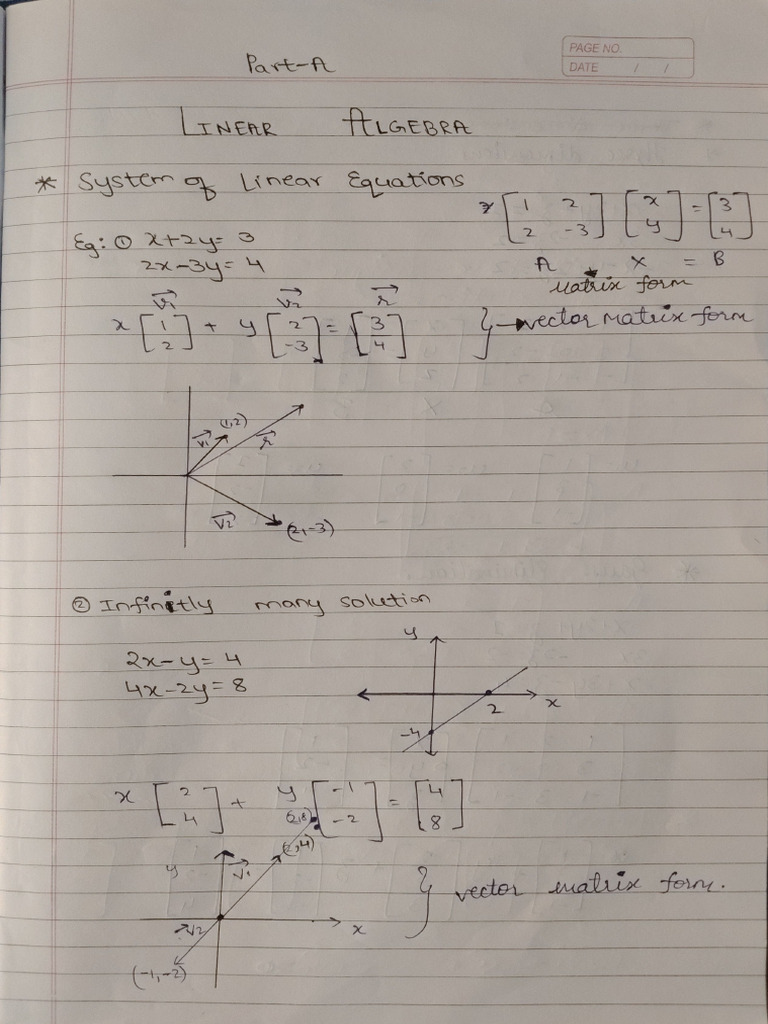 Part-A
PAGE NO.
DATE / /
LINEAR ALGEBRA
* System of Linear Equations
Eg: ① x+2y= 3
2x-3y= 4
[1 2
2 -3] [x
y] = [3
4]
A X = B
Matrix form
x [1
2] + y [2
-3] = [3
4]
v1 v2 r
} → vector matrix form
v1 (1,2)
r
v2 (2,-3)
② Infinitly many solution
2x-y= 4
4x-2y= 8
y
2 x
-4
x [2
4] + y [-1
-2] = [4
8]
(2,4)
y v1
} vector matrix form.
v2 x
(-1,-2)